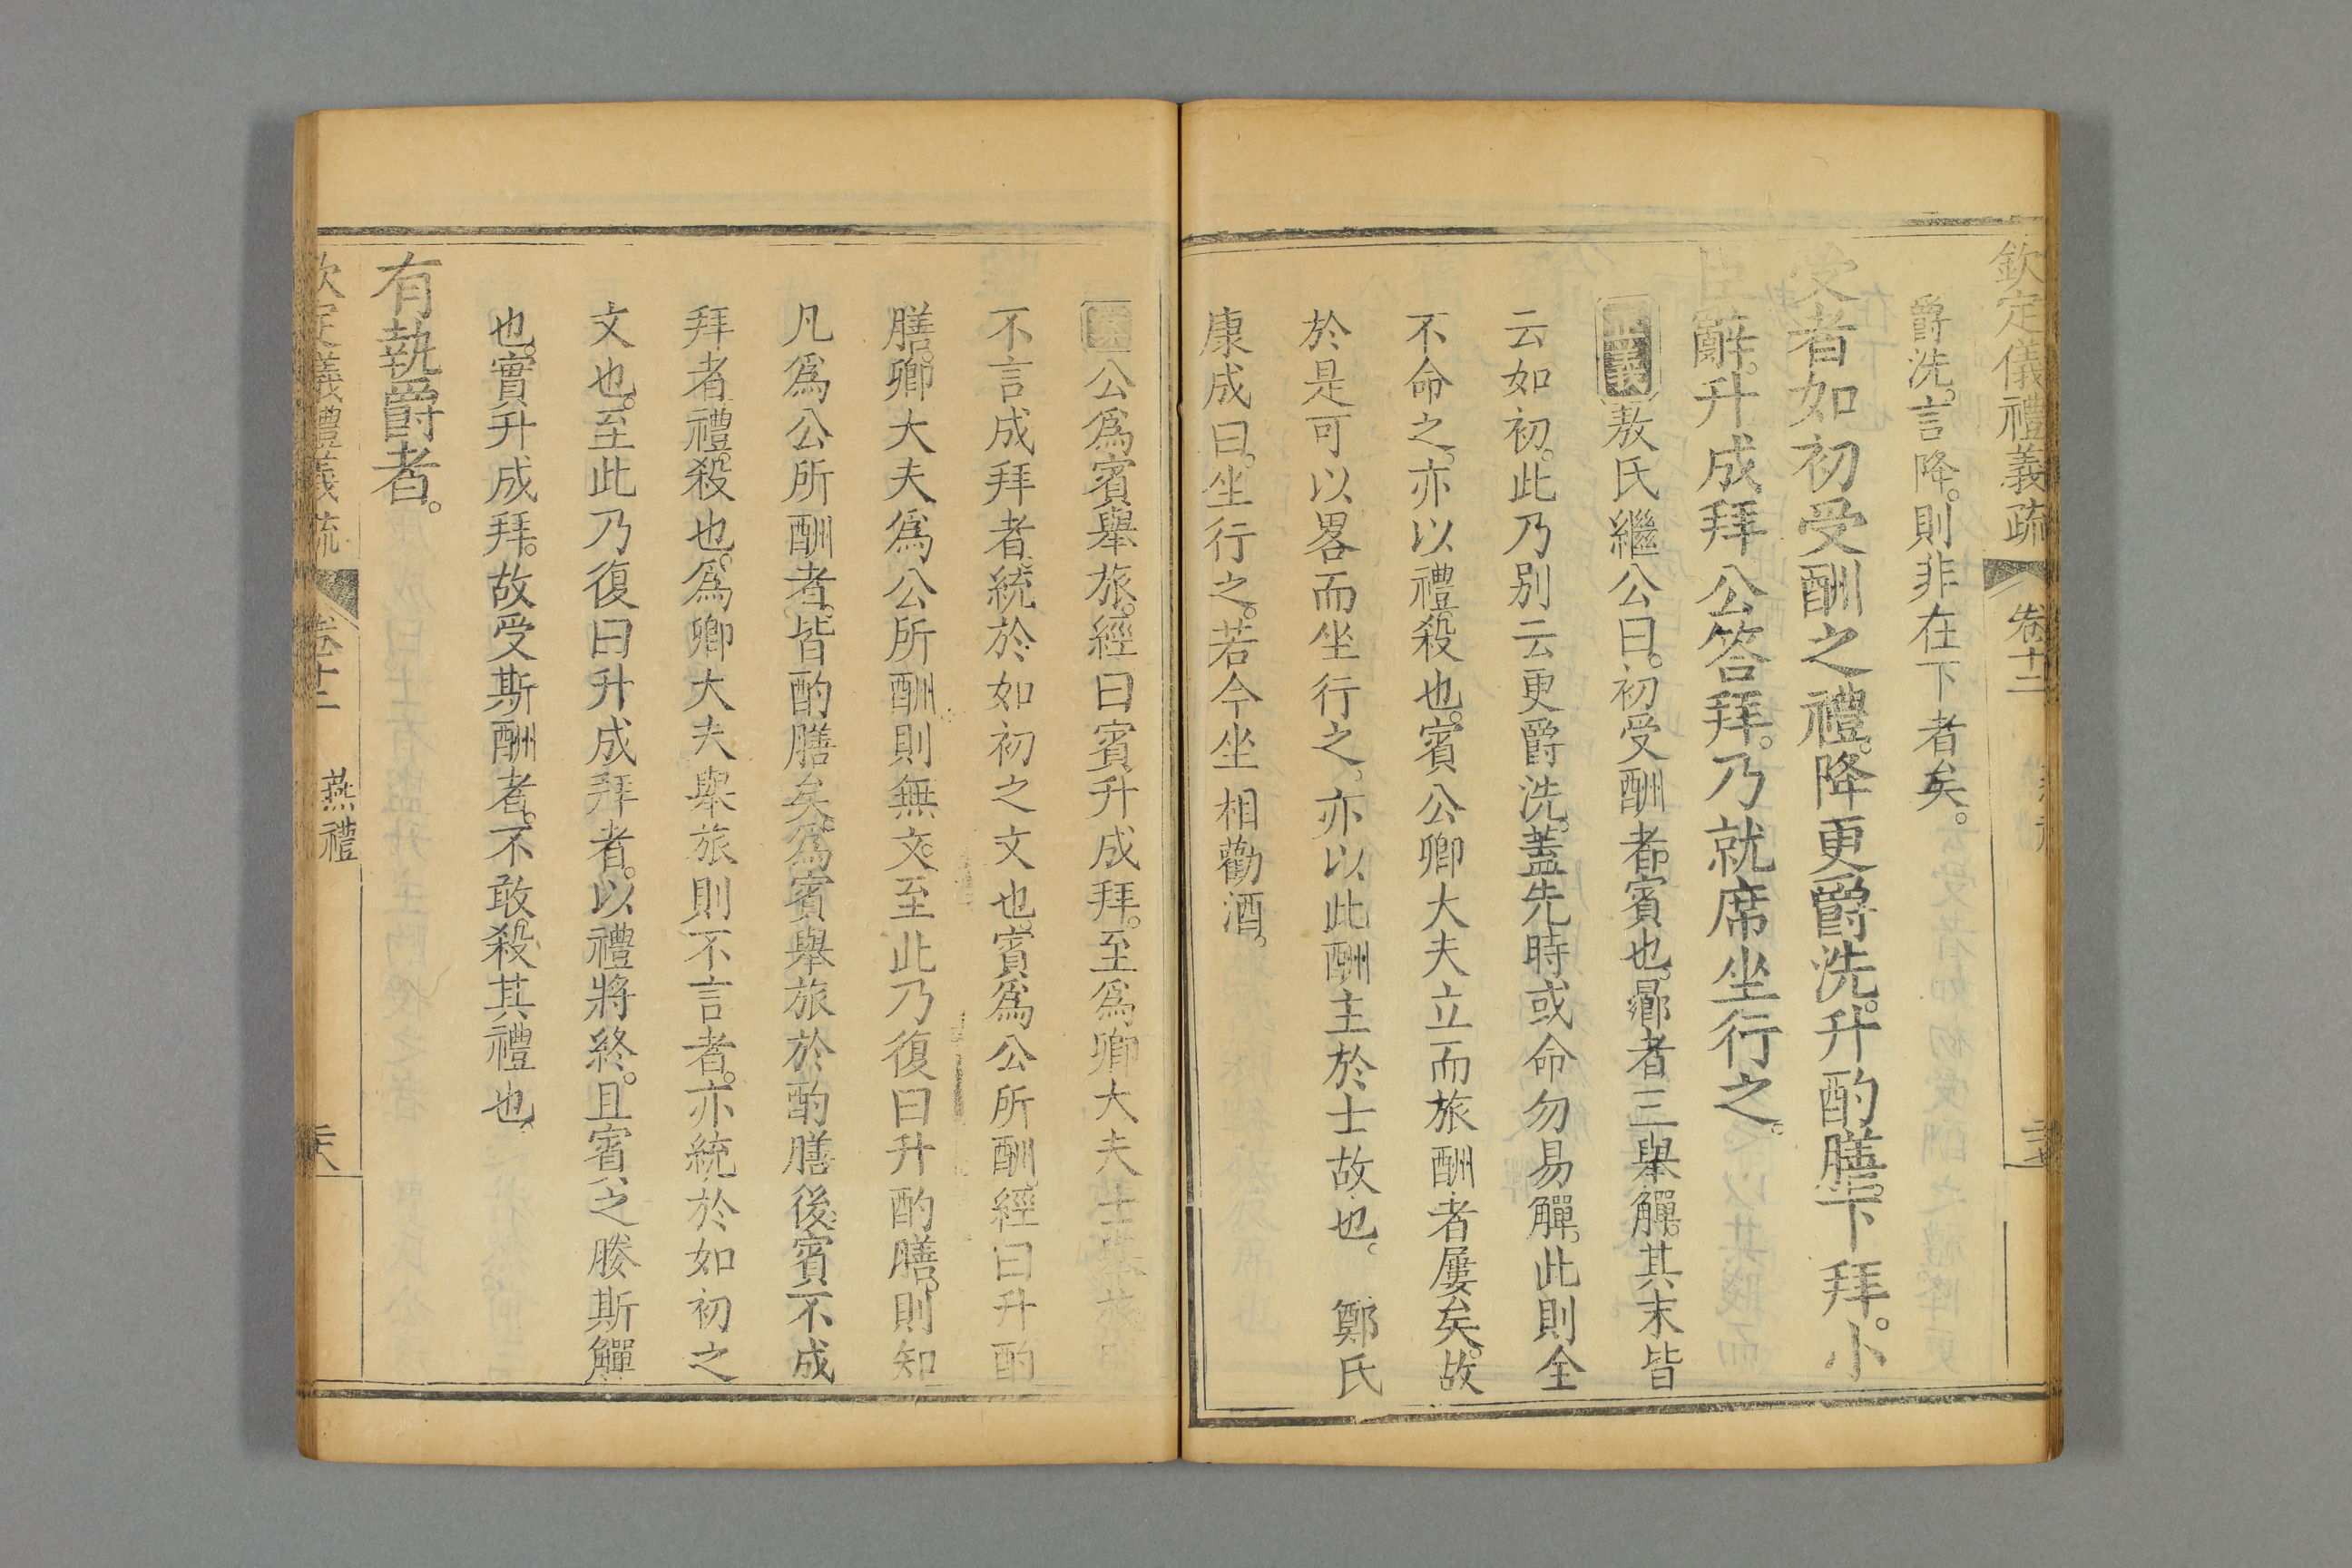 欽定儀禮義疏 卷十二
爵洗。言降。則非在下者矣。
受者如初受酬之禮。降更爵洗。升酌膳。下拜。小
臣辭。升成拜公答拜。乃就席坐行之。
正義敖氏繼公曰。初受酬者賓也。鄉者三舉觶。其末皆
云如初。此乃别云更爵洗。蓋先時或命勿易觶。此則全
不命之。亦以禮殺也。賓公卿大夫立而旅酬者屢矣。故
於是可以畧而坐行之。亦以此酬主於士故也。 鄭氏
康成曰。坐行之。若今坐相勸酒。
案公爲賓舉旅。經曰賓升成拜。至爲卿大夫士舉旅皆
不言成拜者統於如初之文也。賓爲公所酬。經曰升酌
膳。卿大夫爲公所酬則無文。至此乃復曰升酌膳。則知
凡爲公所酬者。皆酌膳矣。爲賓舉旅於酌膳後。賓不成
拜者。禮殺也。爲卿大夫舉旅則不言者。亦統於如初之
文也。至此乃復曰升成拜者。以禮將終。且賓之媵斯觶
也。實升成拜。故受斯酬者。不敢殺其禮也。
有執爵者。
欽定儀禮義疏 卷十二 燕禮